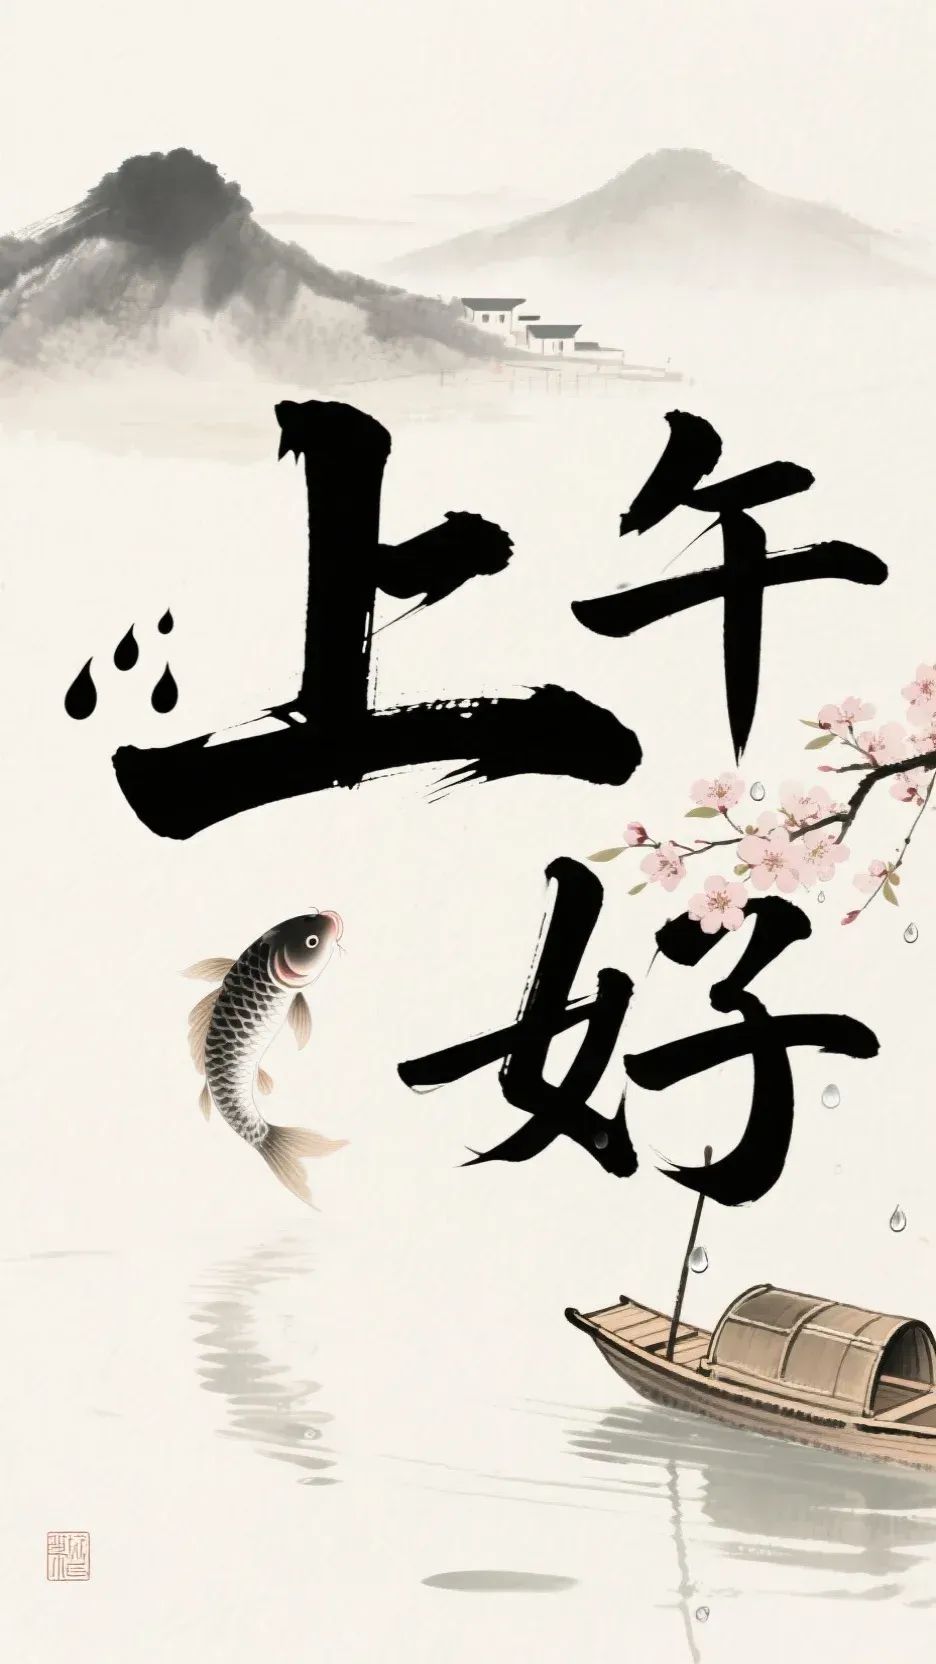 上午
好